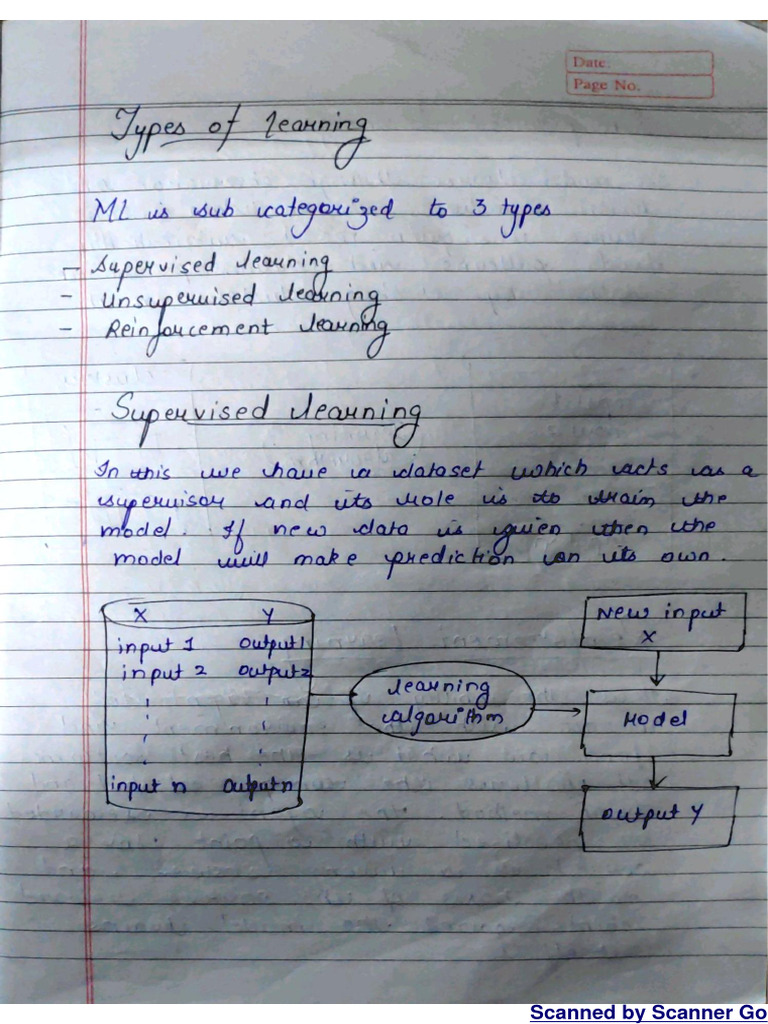 Date.
Page No.
Types of learning
ML is sub categorized to 3 types
- Supervised learning
- Unsupervised learning
- Reinforcement learning
Supervised learning
In this we have a dataset which acts as a
supervisor and its role is to train the
model. If new data is given then the
model will make prediction on its own.
X Y
input 1 output 1
input 2 output 2
input n output n
learning
algorithm
New input
X
Model
Output Y
Scanned by Scanner Go